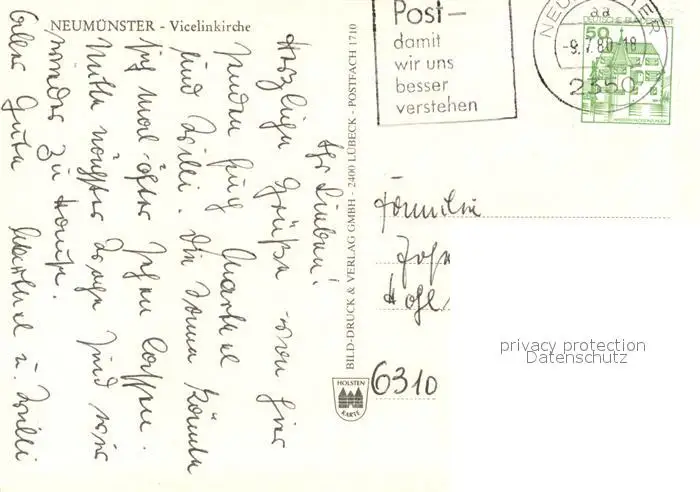 NEUMÜNSTER - Vicelinkirche
Ihr Lieben!
Herzliche Grüße von hier
senden Euch Martha
und Willi. Die Sonne könnte
sich mal öfter sehen lassen.
Mitte nächster Woche sind wir
wieder zu Hause.
Alles Gute
u. Willi
BILD-DRUCK & VERLAG GMBH - 2400 LÜBECK - POSTFACH 1710
HOLSTEN
KARTE
Post-
damit
wir uns
besser
verstehen
NEUMÜNSTER
aa
-9.7.80-18
2350
DEUTSCHE BUNDESPOST
50
Familie
6310
privacy protection
Datenschutz